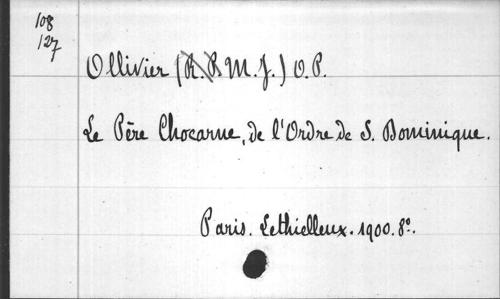 108
127
Ollivier (R. P. M. J.) O. P.
Le Père Chocarne, de l'Ordre de S. Dominique.
Paris. Lethielleux. 1900. 8º.